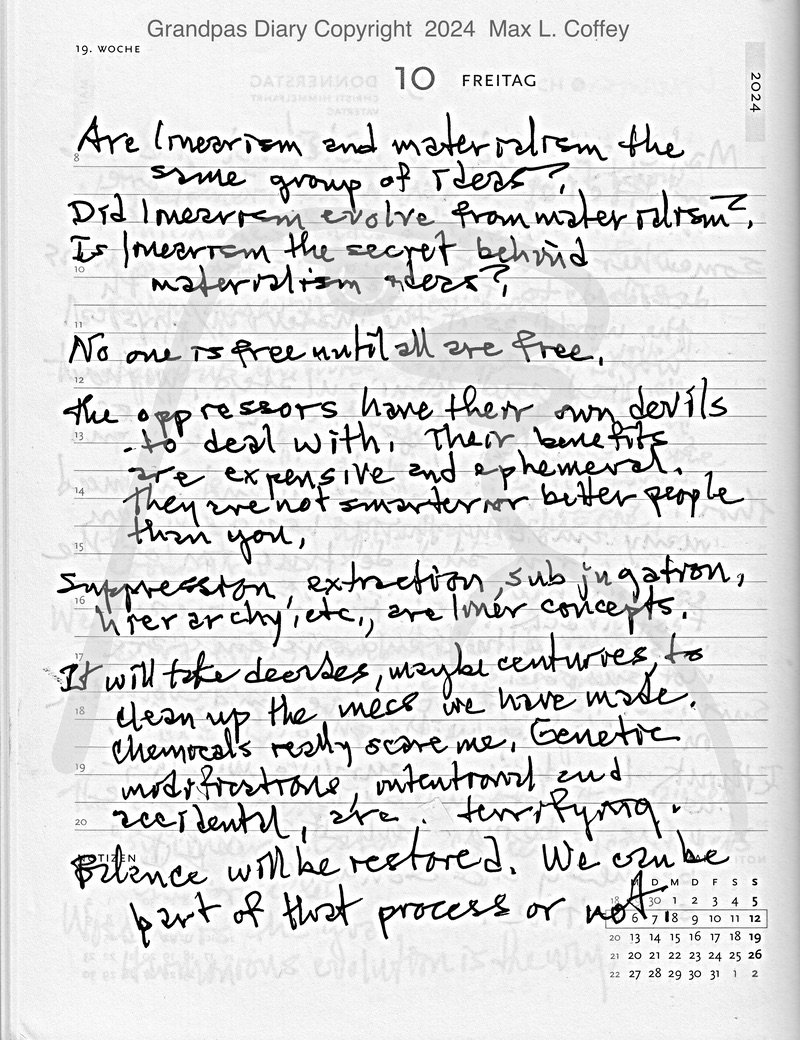 Grandpas Diary Copyright 2024 Max L. Coffey
19. WOCHE
10 FREITAG
2024
Are linearism and materialism the
same group of ideas?
Did linearism evolve from materialism?
Is linearism the secret behind
materialism ideas?
No one is free until all are free.
The oppressors have their own devils
to deal with. Their benefits
are expensive and ephemeral.
They are not smarter or better people
than you.
Suppression, extraction, subjugation,
hierarchy, etc., are liner concepts.
It will take decades, maybe centuries, to
clean up the mess we have made.
Chemicals really scare me. Genetic
modifications, intentional and
accidental, are terrifying.
NOTIZEN
Balance will be restored. We can be
part of that process or not
8
10
11
12
13
14
15
16
17
18
19
20
M D M D F S S
18 30 1 2 3 4 5
6 7 8 9 10 11 12
20 13 14 15 16 17 18 19
21 20 21 22 23 24 25 26
22 27 28 29 30 31 1 2